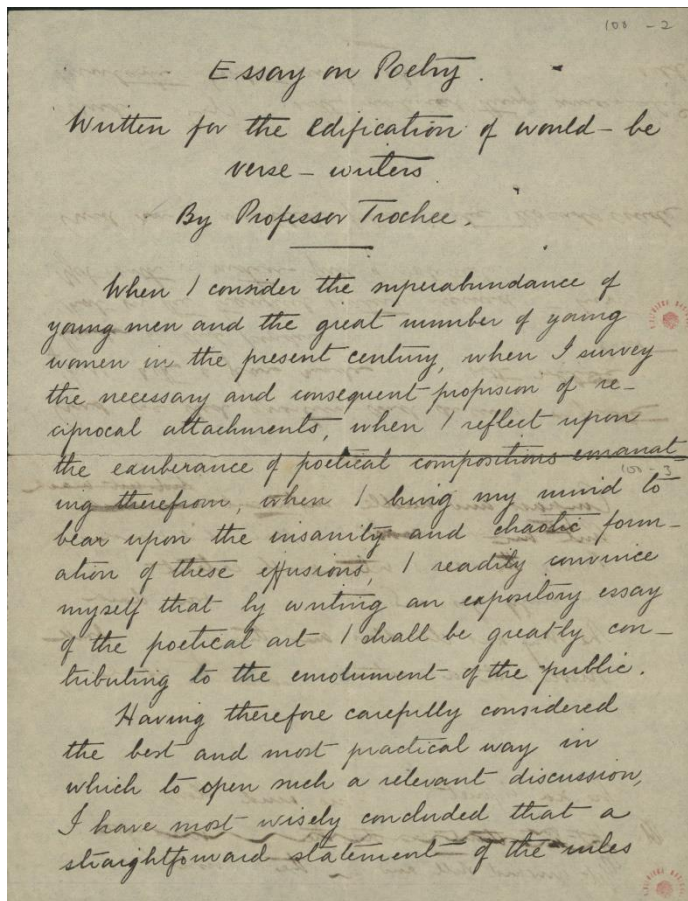 100 - 2
Essay on Poetry.
Written for the edification of would-be
verse-writers
By Professor Trochee.
When I consider the superabundance of
young men and the great number of young
women in the present century, when I survey
the necessary and consequent profusion of re-
ciprocal attachments, when I reflect upon
the exuberance of poetical compositions emanat-
100 - 3
ing therefrom, when I bring my mind to
bear upon the insanity and chaotic form-
ation of these effusions, I readily convince
myself that by writing an expository essay
of the poetical art I shall be greatly con-
tributing to the emolument of the public.
Having therefore carefully considered
the best and most practical way in
which to open such a relevant discussion,
I have most wisely concluded that a
straightforward statement of the rules